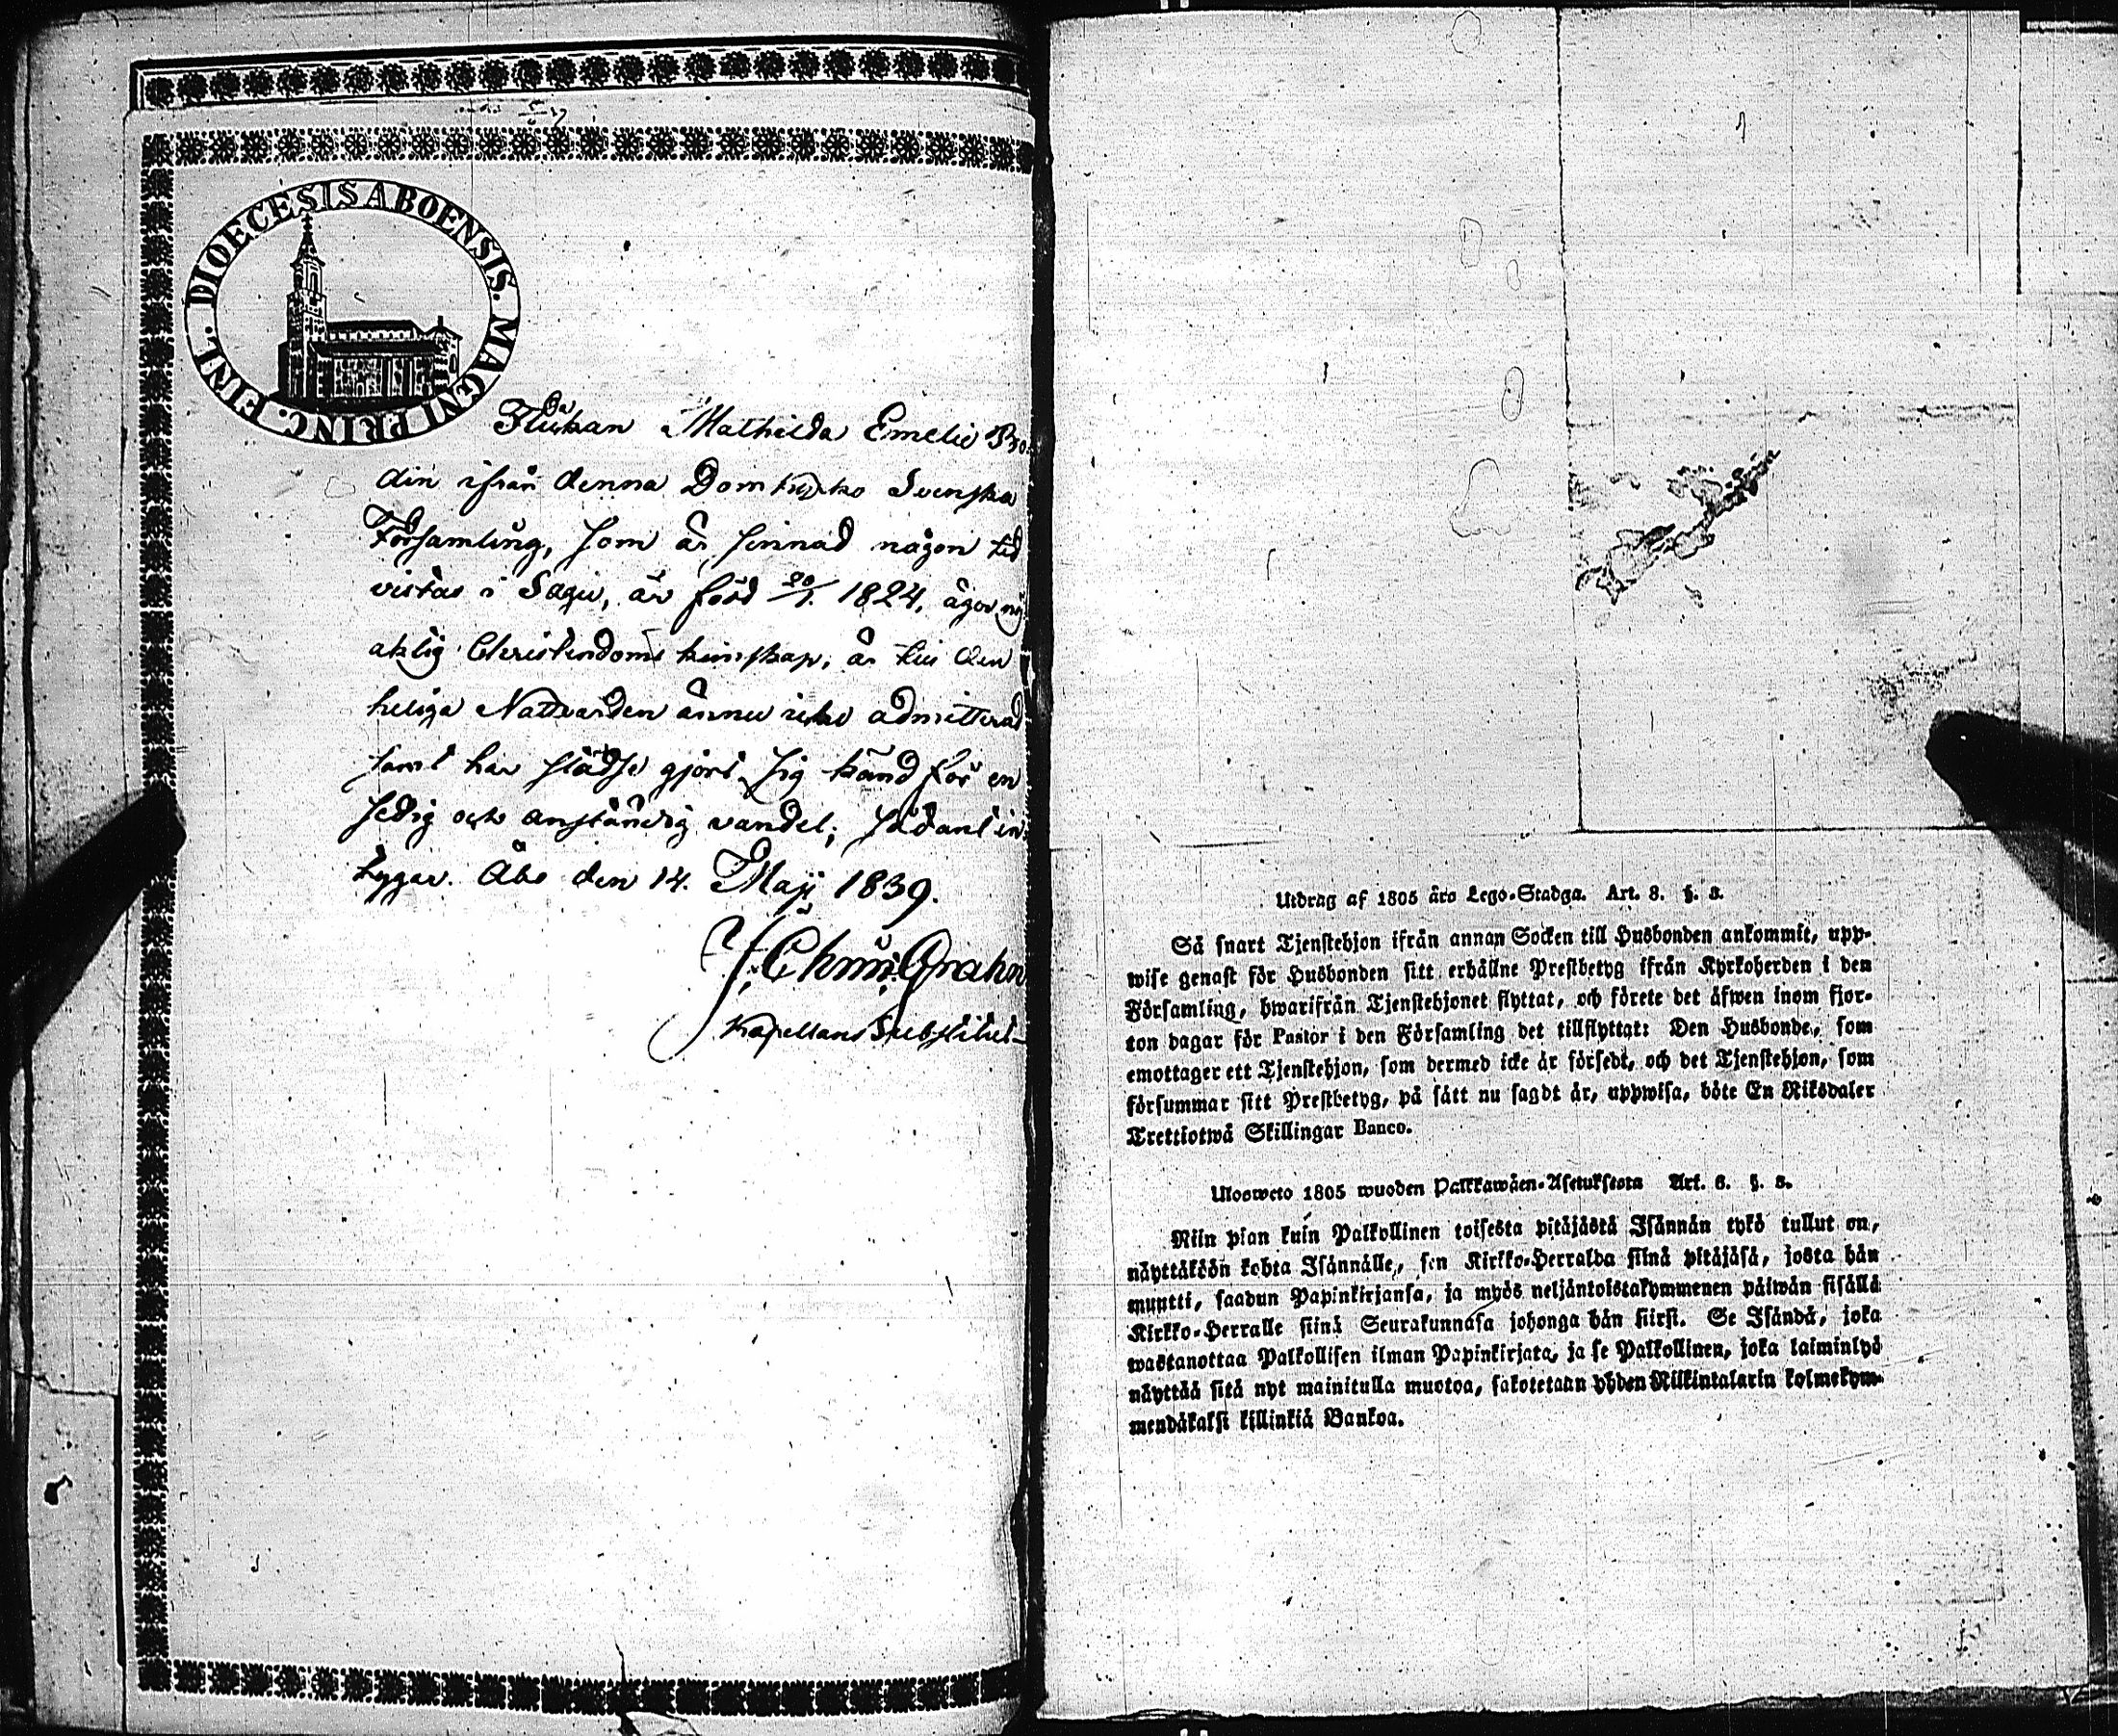 DIOECESIS ABOENSIS. MAGNI PRINC. FINL.
Flickan Mathilda Emelie Bro-
din ifrån denna Domkyrko Svenska
Församling, som är sinnad någon tid
vistas i Sagu, är född 20/1. 1824, äger nöj
aktig Christendoms kunskap, är till den
heliga Nattvarden ännu icke admitterad
samt har städse gjort sig känd för en
sedig och anständig vandel; sådant in-
tygar. Åbo den 14. Maji 1839.
Grahn
Kapellans Substitut
Utdrag af 1805 års Lego-Stadga. Art. 8. §. 3.
Så snart Tjenstehjon ifrån annan Socken till Husbonden ankommit, upp-
wise genast för Husbonden sitt erhållne Prestbetyg ifrån Kyrkoherden i den
Församling, hwarifrån Tjenstehjonet flyttat, och förete det äfwen inom fjor-
ton dagar för Pastor i den Församling det tillflyttat: Den Husbonde, som
emottager ett Tjenstehjon, som dermed icke är försedt, och det Tjenstehjon, som
försummar sitt Prestbetyg, på sätt nu sagdt är, uppwisa, böte En Riksdaler
Trettiotwå Skillingar Banco.
Ulosweto 1805 wuoden Palkkawäen-Asetuksesta Art. 8. §. 3.
Niin pian kuin Palkollinen toisesta pitäjästä Isännän tykö tullut on,
näyttäköön kohta Isännälle, sen Kirkko-Herralda siinä pitäjäsä, josta hän
muutti, saadun Papinkirjansa, ja myös neljäntoistakymmenen päiwän sisällä
Kirkko-Herralle siinä Seurakunnasa johonga hän siirsi. Se Isändä, joka
wastanottaa Palkollisen ilman Papinkirjata, ja se Palkollinen, joka laiminlyö
näyttää sitä nyt mainitulla muotoa, sakotetaan yhden Riikintalarin kolmekym-
mendäkaksi killinkiä Bankoa.